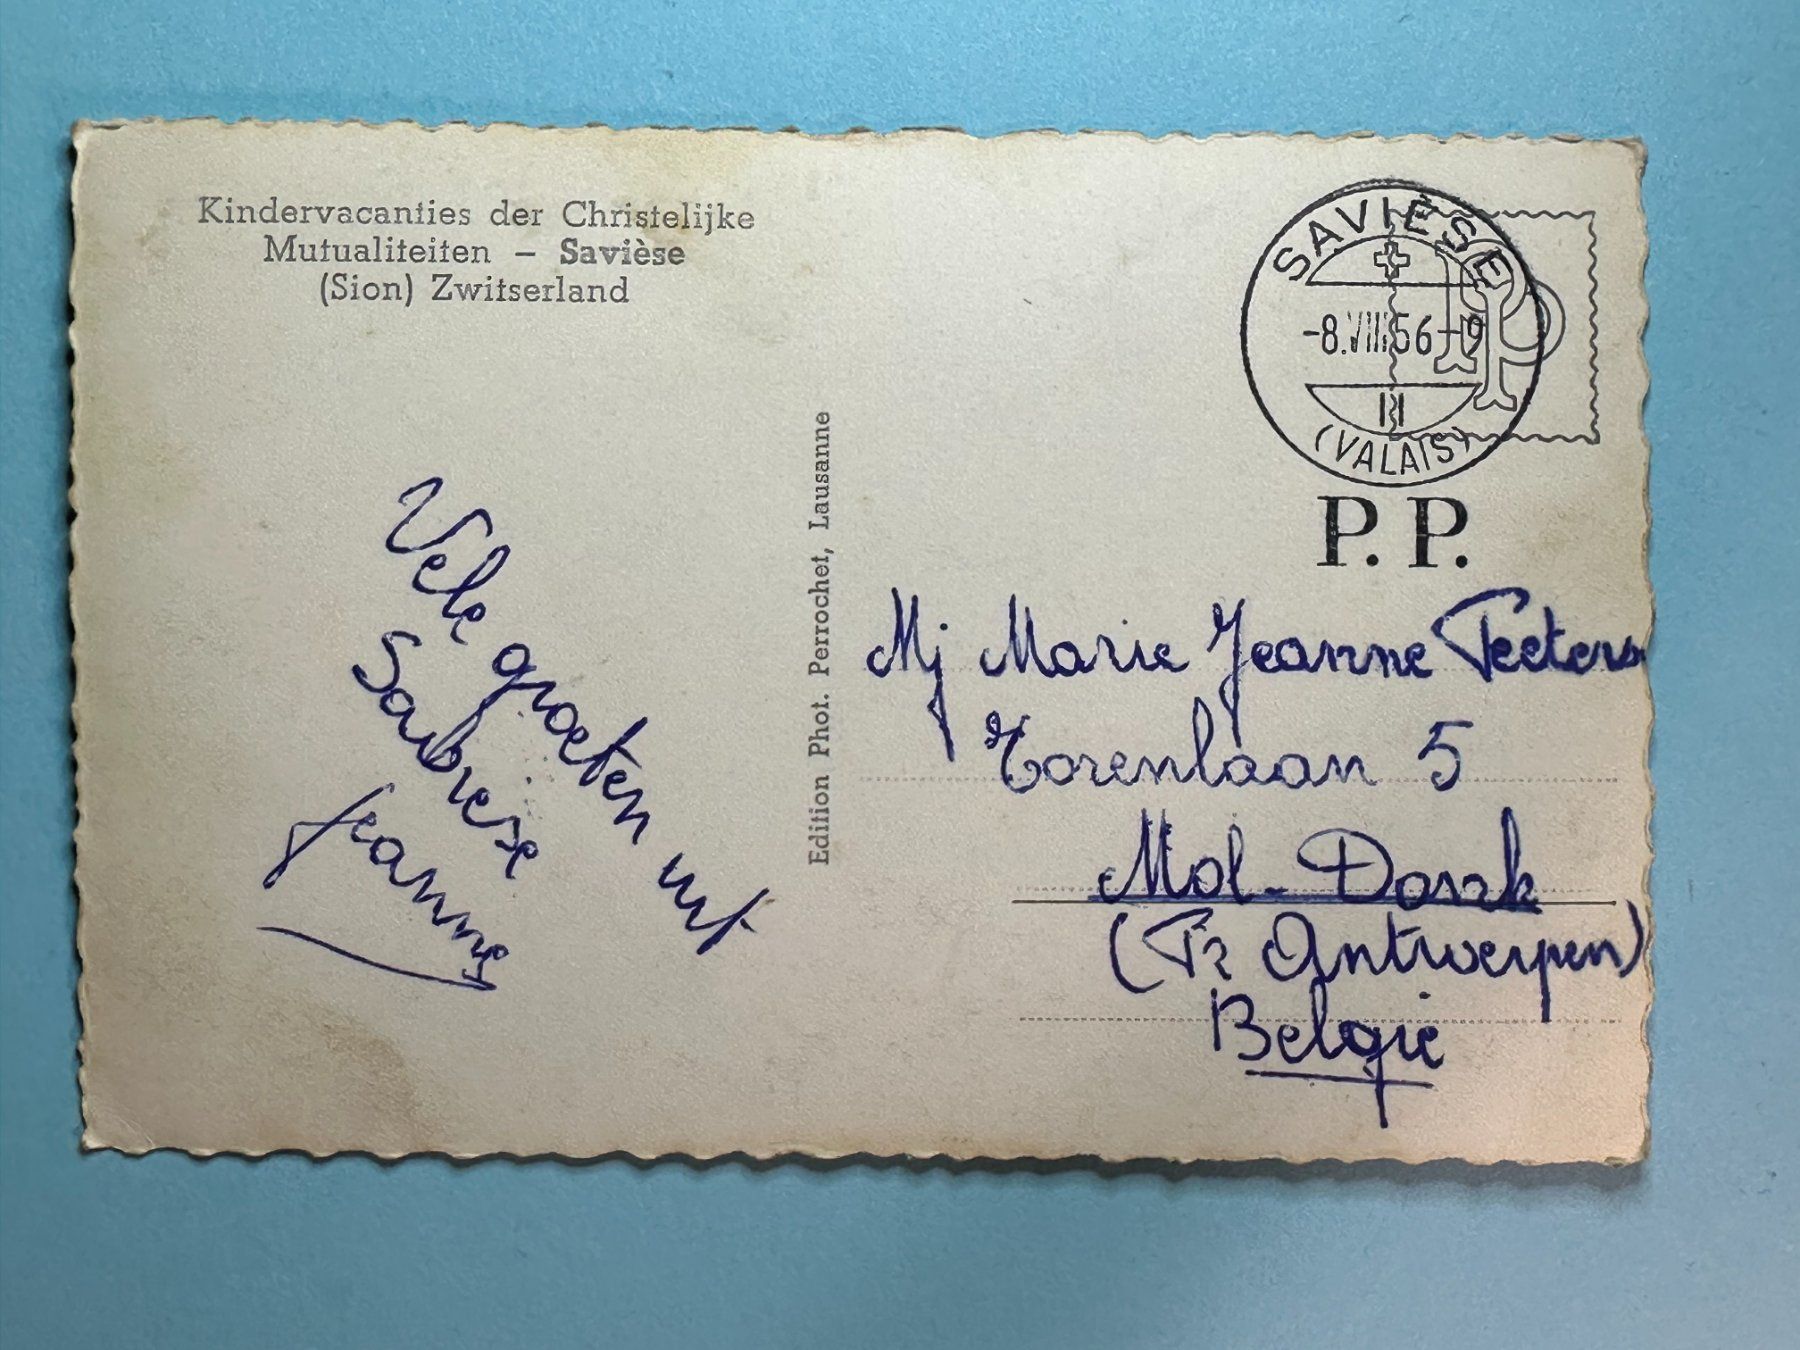 Kindervacanties der Christelijke
Mutualiteiten – Savièse
(Sion) Zwitserland
Vele groeten uit
Savièse
Jeanne
Edition Phot. Perrochet, Lausanne
SAVIÈSE
-8.VIII 56-9
(VALAIS)
P. P.
Mj Marie Jeanne Peeters
Torenlaan 5
Mol-Donk
(Pr Antwerpen)
België